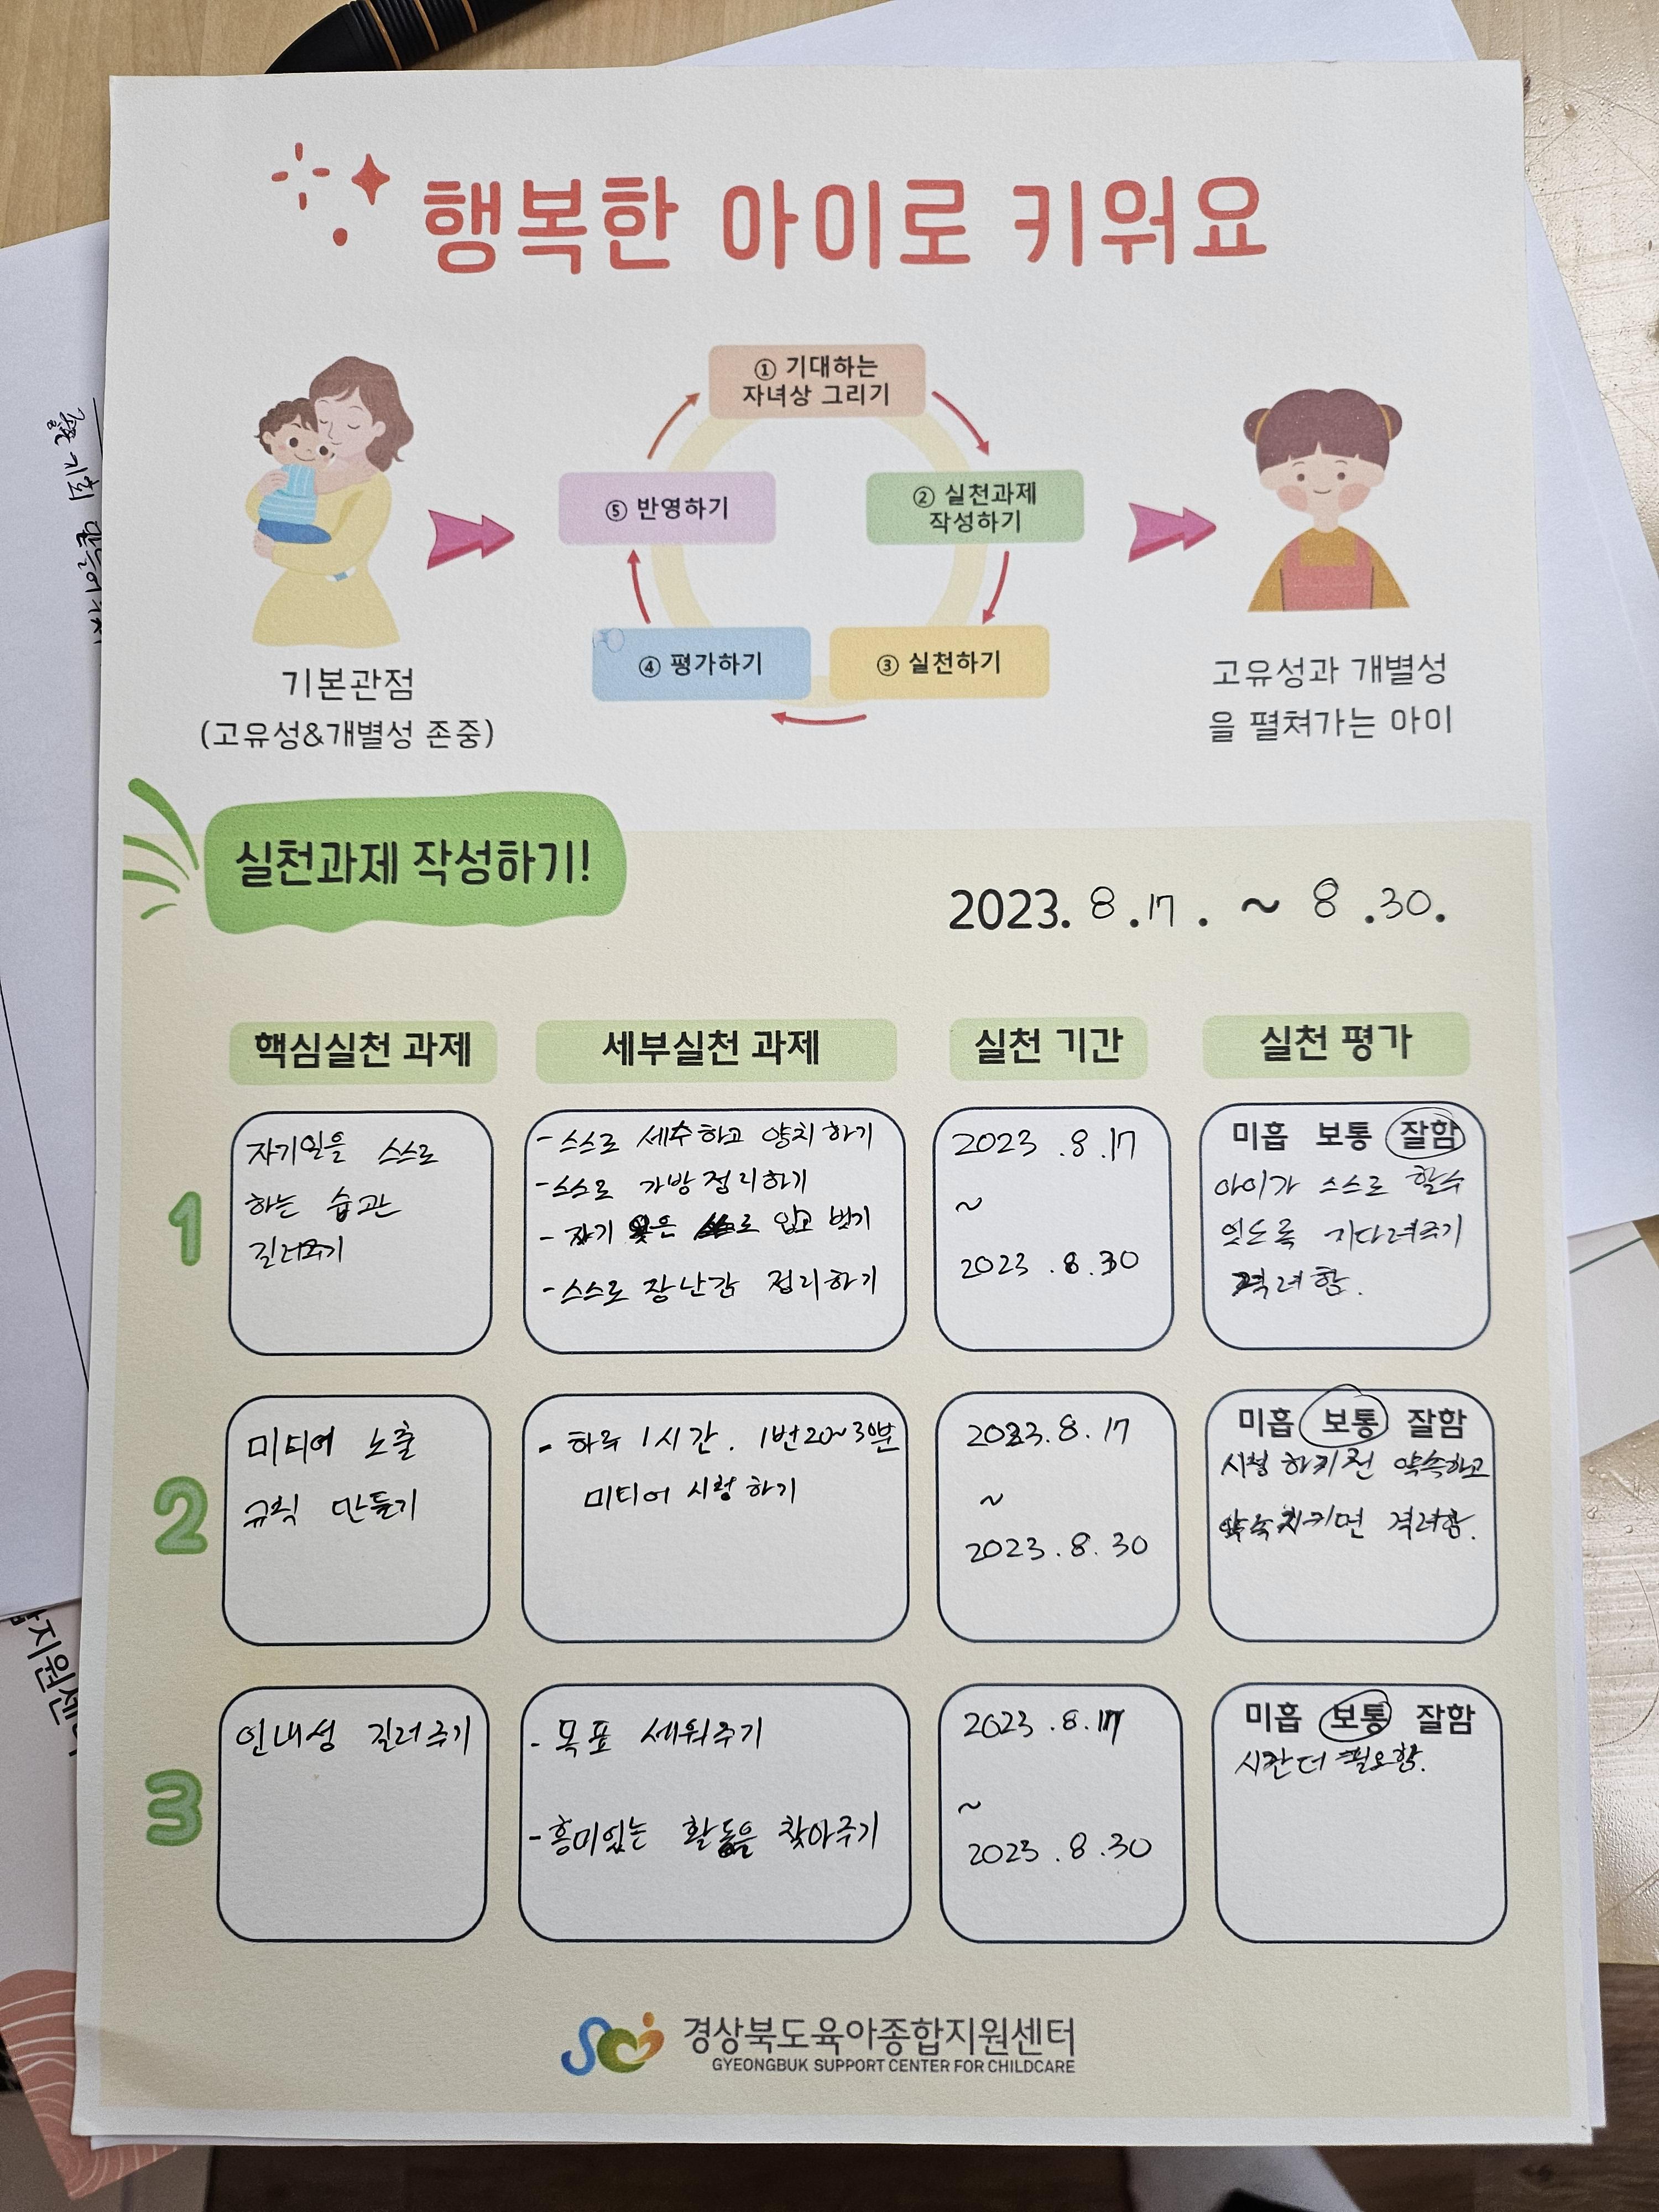 행복한 아이로 키워요
① 기대하는
자녀상 그리기
② 실천과제
작성하기
③ 실천하기
④ 평가하기
⑤ 반영하기
기본관점
(고유성&개별성 존중)
고유성과 개별성
을 펼쳐가는 아이
실천과제 작성하기!
2023. 8.17. ~ 8.30.
핵심실천 과제
세부실천 과제
실천 기간
실천 평가
1
자기일을 스스로
하는 습관
길러주기
- 스스로 세수하고 양치하기
- 스스로 가방정리하기
- 자기 옷은 스스로 입고 벗기
- 스스로 장난감 정리하기
2023.8.17
~
2023.8.30
미흡 보통 잘함
아이가 스스로 할수
있도록 기다려주기
격려함.
2
미티어 노출
규칙 만들기
- 하루 1시간. 1번20~30분
미티어 시청하기
2023.8.17
~
2023.8.30
미흡 보통 잘함
시청하기전 약속하고
약속지키면 격려함.
3
인내성 길러주기
- 목표 세워주기
- 흥미있는 활동을 찾아주기
2023.8.17
~
2023.8.30
미흡 보통 잘함
시간더 필요함.
경상북도육아종합지원센터
GYEONGBUK SUPPORT CENTER FOR CHILDCARE